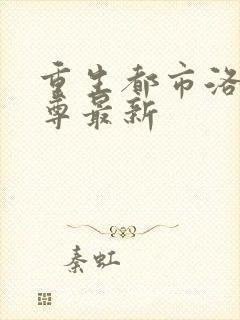 重生都市洛
尊最新
秦虹